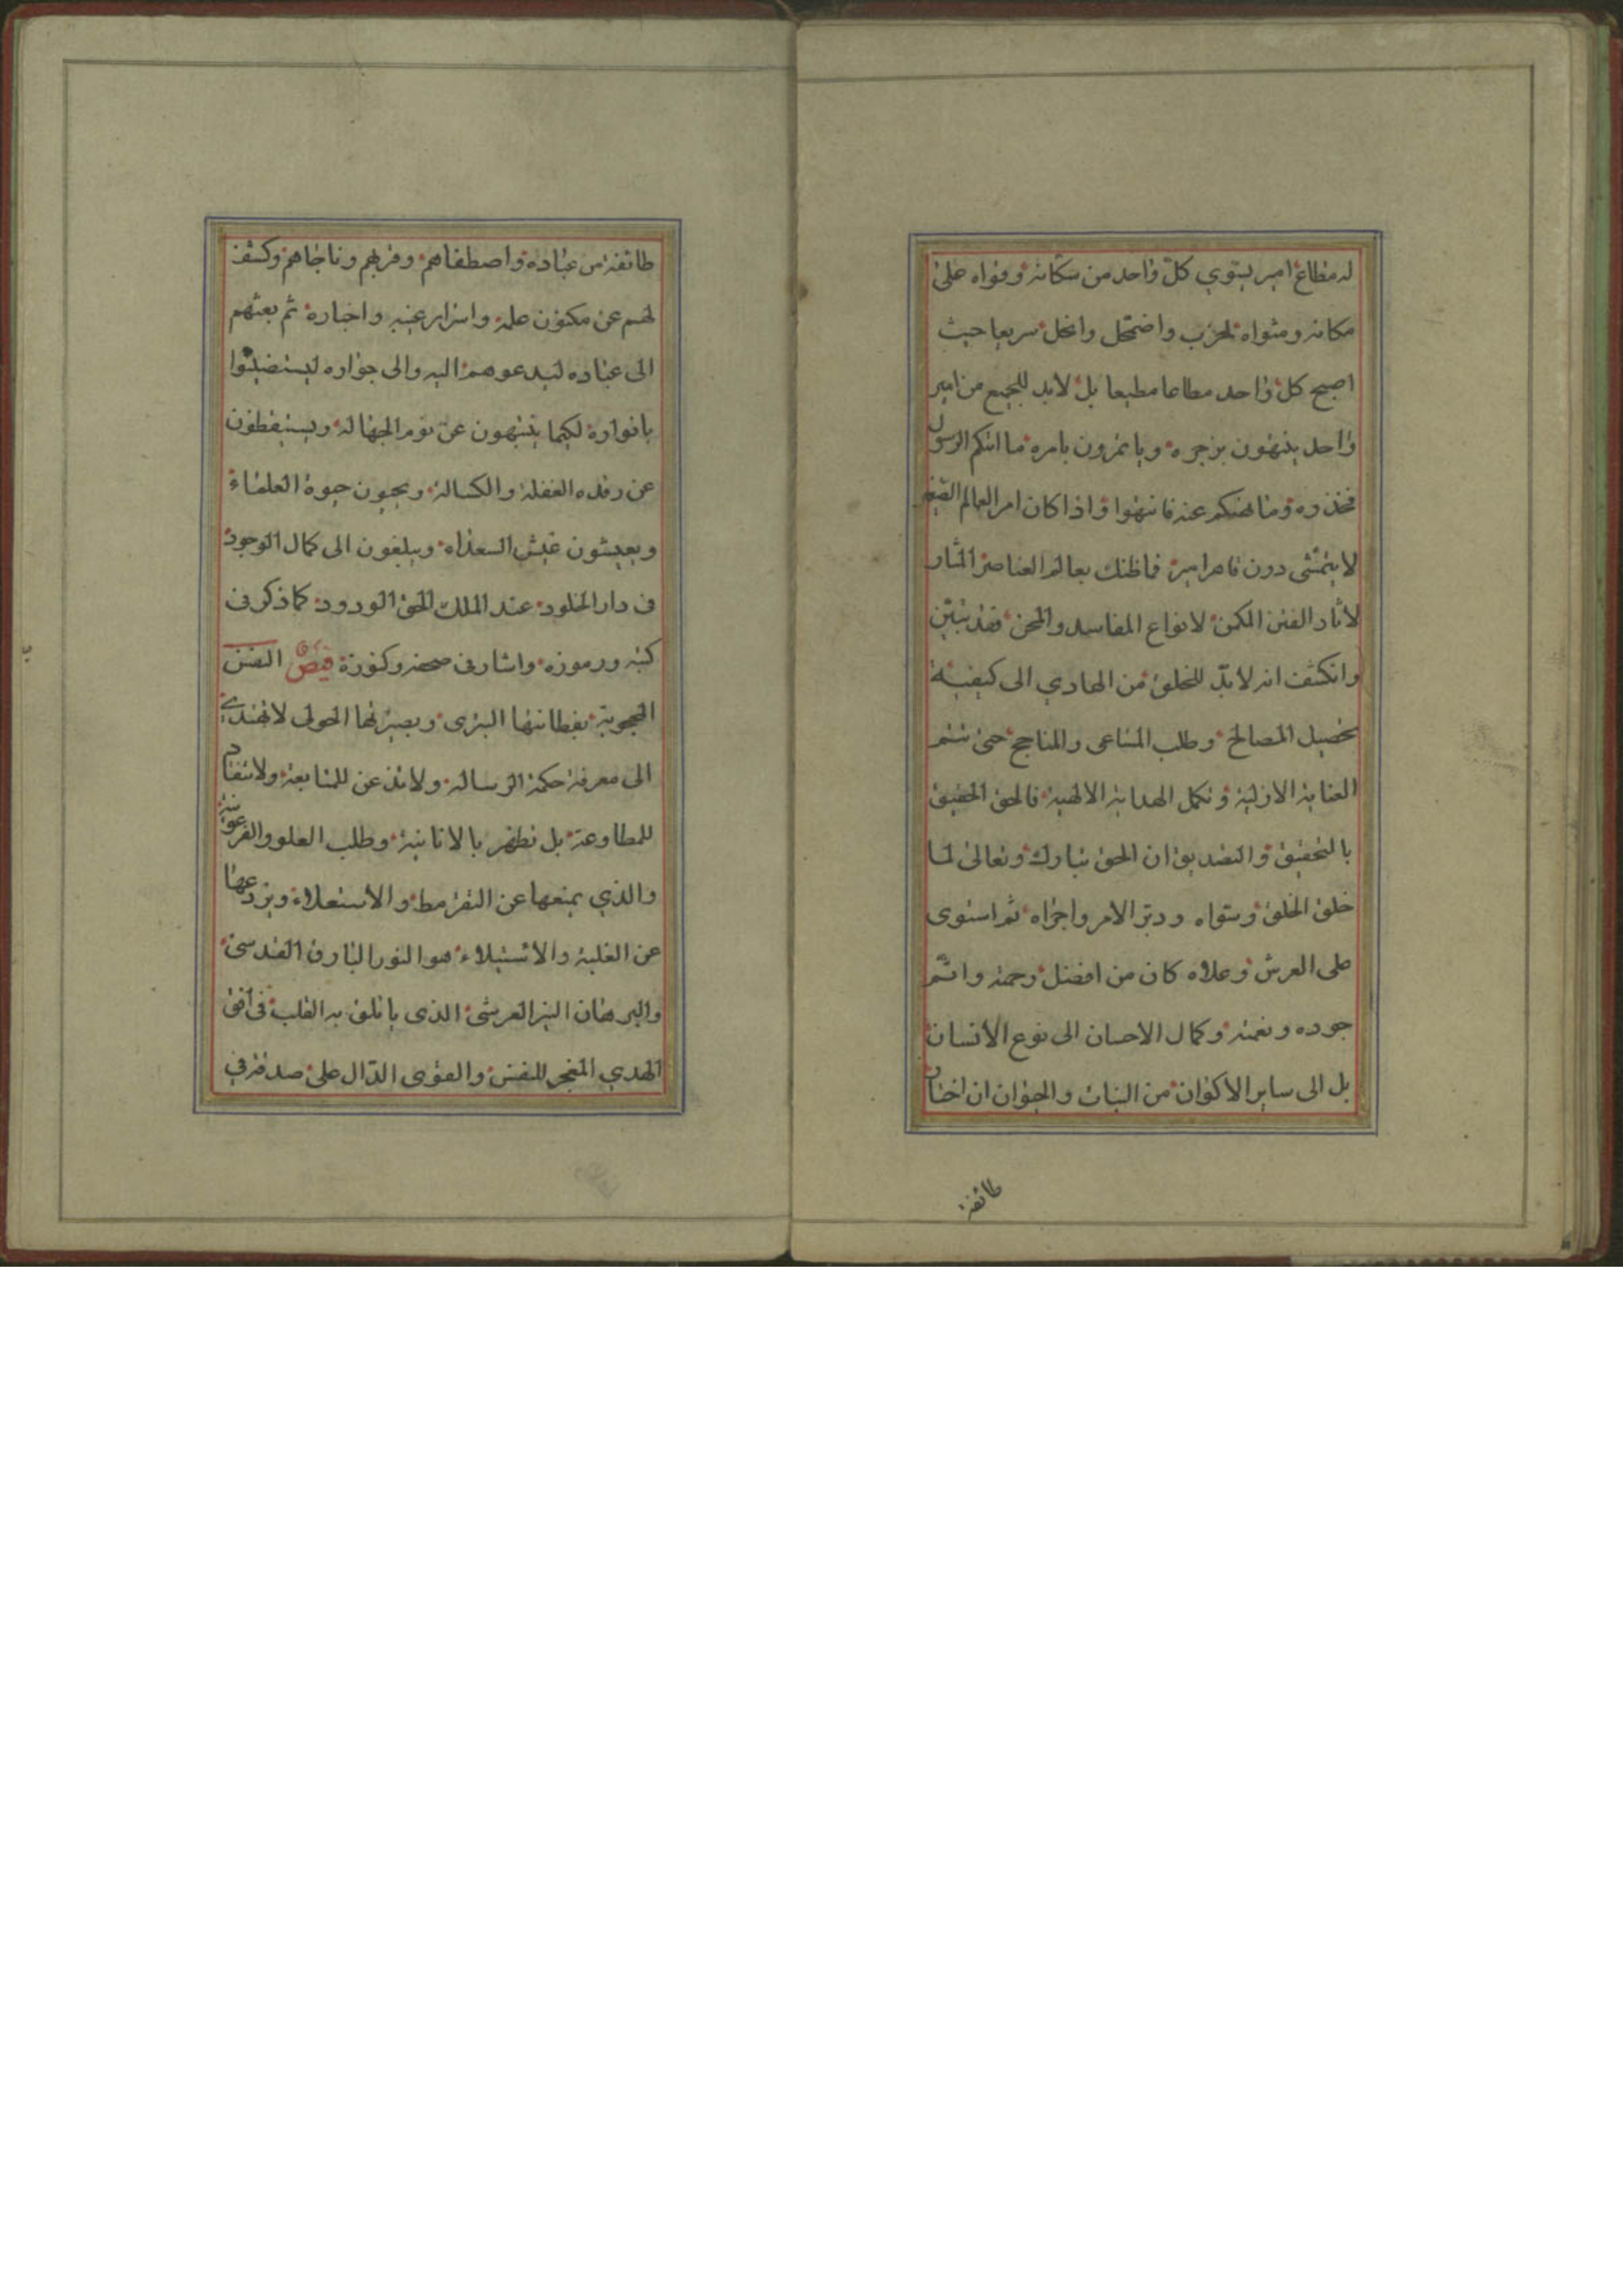 له مطاع امير يسوي كلّ واحد من سكانه وقواه على
مكانه ومثواه لخرب واضمحل وانحل سريعا حيث
اصبح كل واحد مطاعا مطيعا بل لابد للجميع من امير
واحد ينتهون بزجره وياتمرون بامره ما اتيكم الرسول
فخذوه وما نهيكم عنه فانتهوا واذا كان امر العالم الصغير
لا يتمشى دون قاهر امير فما ظنك بعالم العناصر المثار
لاثار الفتن المكمن لانواع المفاسد والمحن فقد تبيّن
وانكشف انه لا بدّ للخلق من الهادي الى كيفية
تحصيل المصالح وطلب المساعى والمناجح حتى تتم
العناية الازلية وتكمل الهداية الالهية فالحق الحقيق
بالتحقيق والتصديق ان الحق تبارك وتعالى لما
خلق الخلق وسواه ودبّر الامر واجراه ثم استوى
على العرش وعلاه كان من افضل رحمته واتم
جوده ونعمته وكمال الاحسان الى نوع الانسان
بل الى ساير الاكوان من النبات والحيوان ان اختار
طائفة
طائفة من عباده واصطفاهم وقربهم وناجاهم وكشف
لهم عن مكنون علمه واسرار غيبه واخباره ثم بعثهم
الى عباده ليدعوهم اليه والى جواره ليستضيئوا
بانواره لكيما ينتبهون عن نوم الجهالة ويستيقظون
عن رقده الغفلة والكسالة ويحيون حيوة العلماء
ويعيشون عيش السعداء ويبلغون الى كمال الوجود
فى دار الخلود عند الملك الحق الودود كما ذكر فى
كتبه ورموزه واشار فى صحفه وكنوزه فيض النفس
المحجوبة بفطانتها البترى وبصيرتها الحولى لا تهتدي
الى معرفة حكمة الرسالة ولا تذعن للمتابعة ولا تنقاد
للمطاوعة بل تظهر بالانانية وطلب العلو والفرعونية
والذي يمنعها عن التقرمط والاستعلاء ويزدعها
عن الغلبة والاستيلاء هو النور البارق القدسى
والبرهان النير العرشى الذى ياتلق به القلب فى افق
الهدي المفجر للنفس والقوى الدّال على صدقه في